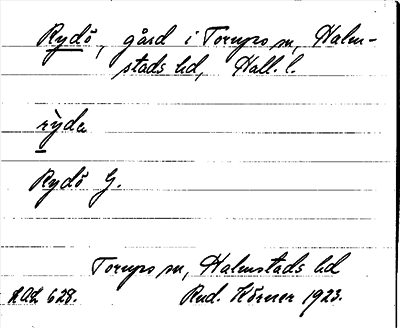 Rydö, gård i Torups sn, Halm-
stads hd, Hall. l.
rỳda
Rydö G.
Torups sn, Halmstads hd
LAL 628. Rud. Körner 1923.